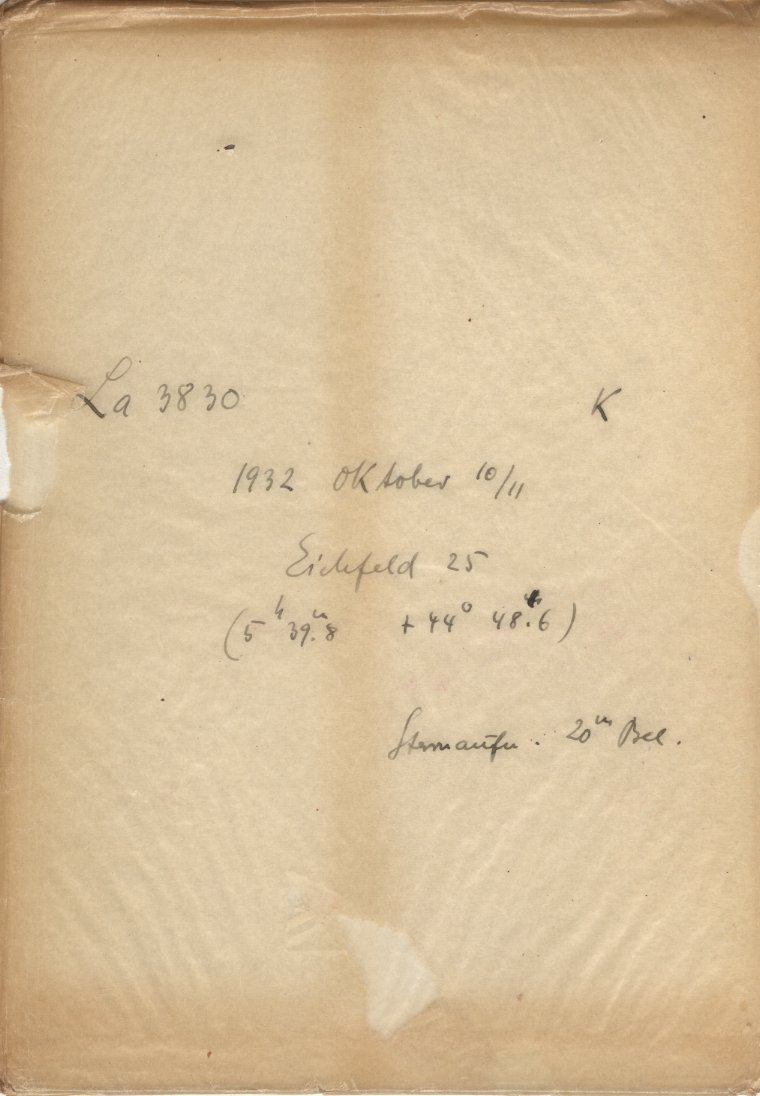 La 3830 K
1932 Oktober 10/11
Eichfeld 25
(5ʰ 39ᵐ.8 + 44° 48'.6)
Sternaufn. 20ᵐ Bel.